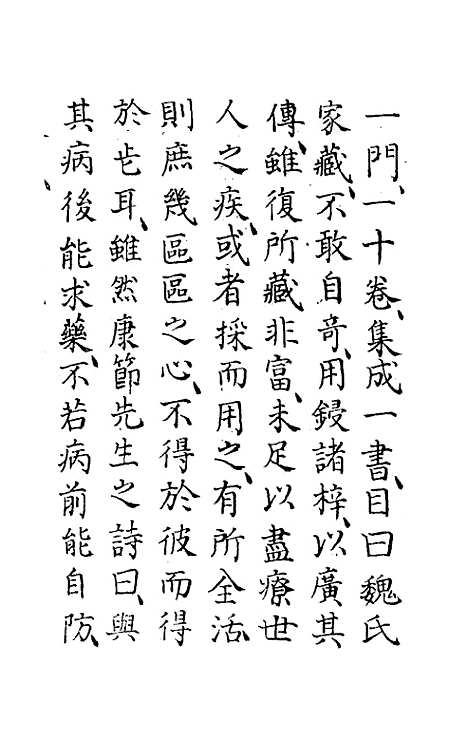 一門、一十卷、集成一書、目曰魏氏
家藏、不敢自奇、用鋟諸梓、以廣其
傳、雖復所藏非富、未足以盡療世
人之疾、或者採而用之、有所全活、
則庶幾區區之心、不得於彼而得
於此耳、雖然康節先生之詩曰、與
其病後能求藥、不若病前能自防、